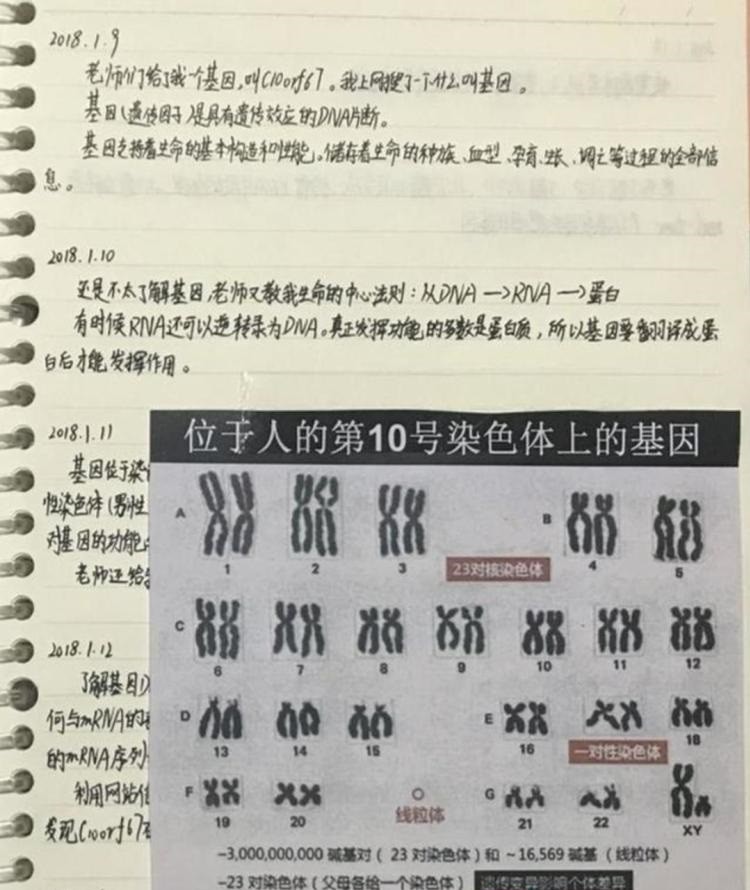 2018.1.9
老师们给了我一个基因,叫C10orf67。我上网搜了一下什么叫基因。
基因(遗传因子)是具有遗传效应的DNA片断。
基因支持着生命的基本构造和性能。储存着生命的种族、血型、孕育、生长、凋亡等过程的全部信
息。
2018.1.10
还是不太了解基因,老师又教我生命的中心法则:从DNA→RNA→蛋白
有时候RNA还可以逆转录为DNA。真正发挥功能的多数是蛋白质,所以基因要翻译成蛋
白后才能发挥作用。
2018.1.11
基因位于染
性染色体(男性
对基因的功能
老师还给
2018.1.12
了解基因D
何与mRNA的
的mRNA序列
利用网站
发现C10orf67
位于人的第10号染色体上的基因
A 1 2 3 B 4 5
23对核染色体
C 6 7 8 9 10 11 12
D 13 14 15 E 16 18
一对性染色体
F 19 20 G 21 22 XY
线粒体
–3,000,000,000 碱基对( 23 对染色体)和 ~16,569 碱基(线粒体)
–23 对染色体(父母各给一个染色体) 遗传变异影响个体差异